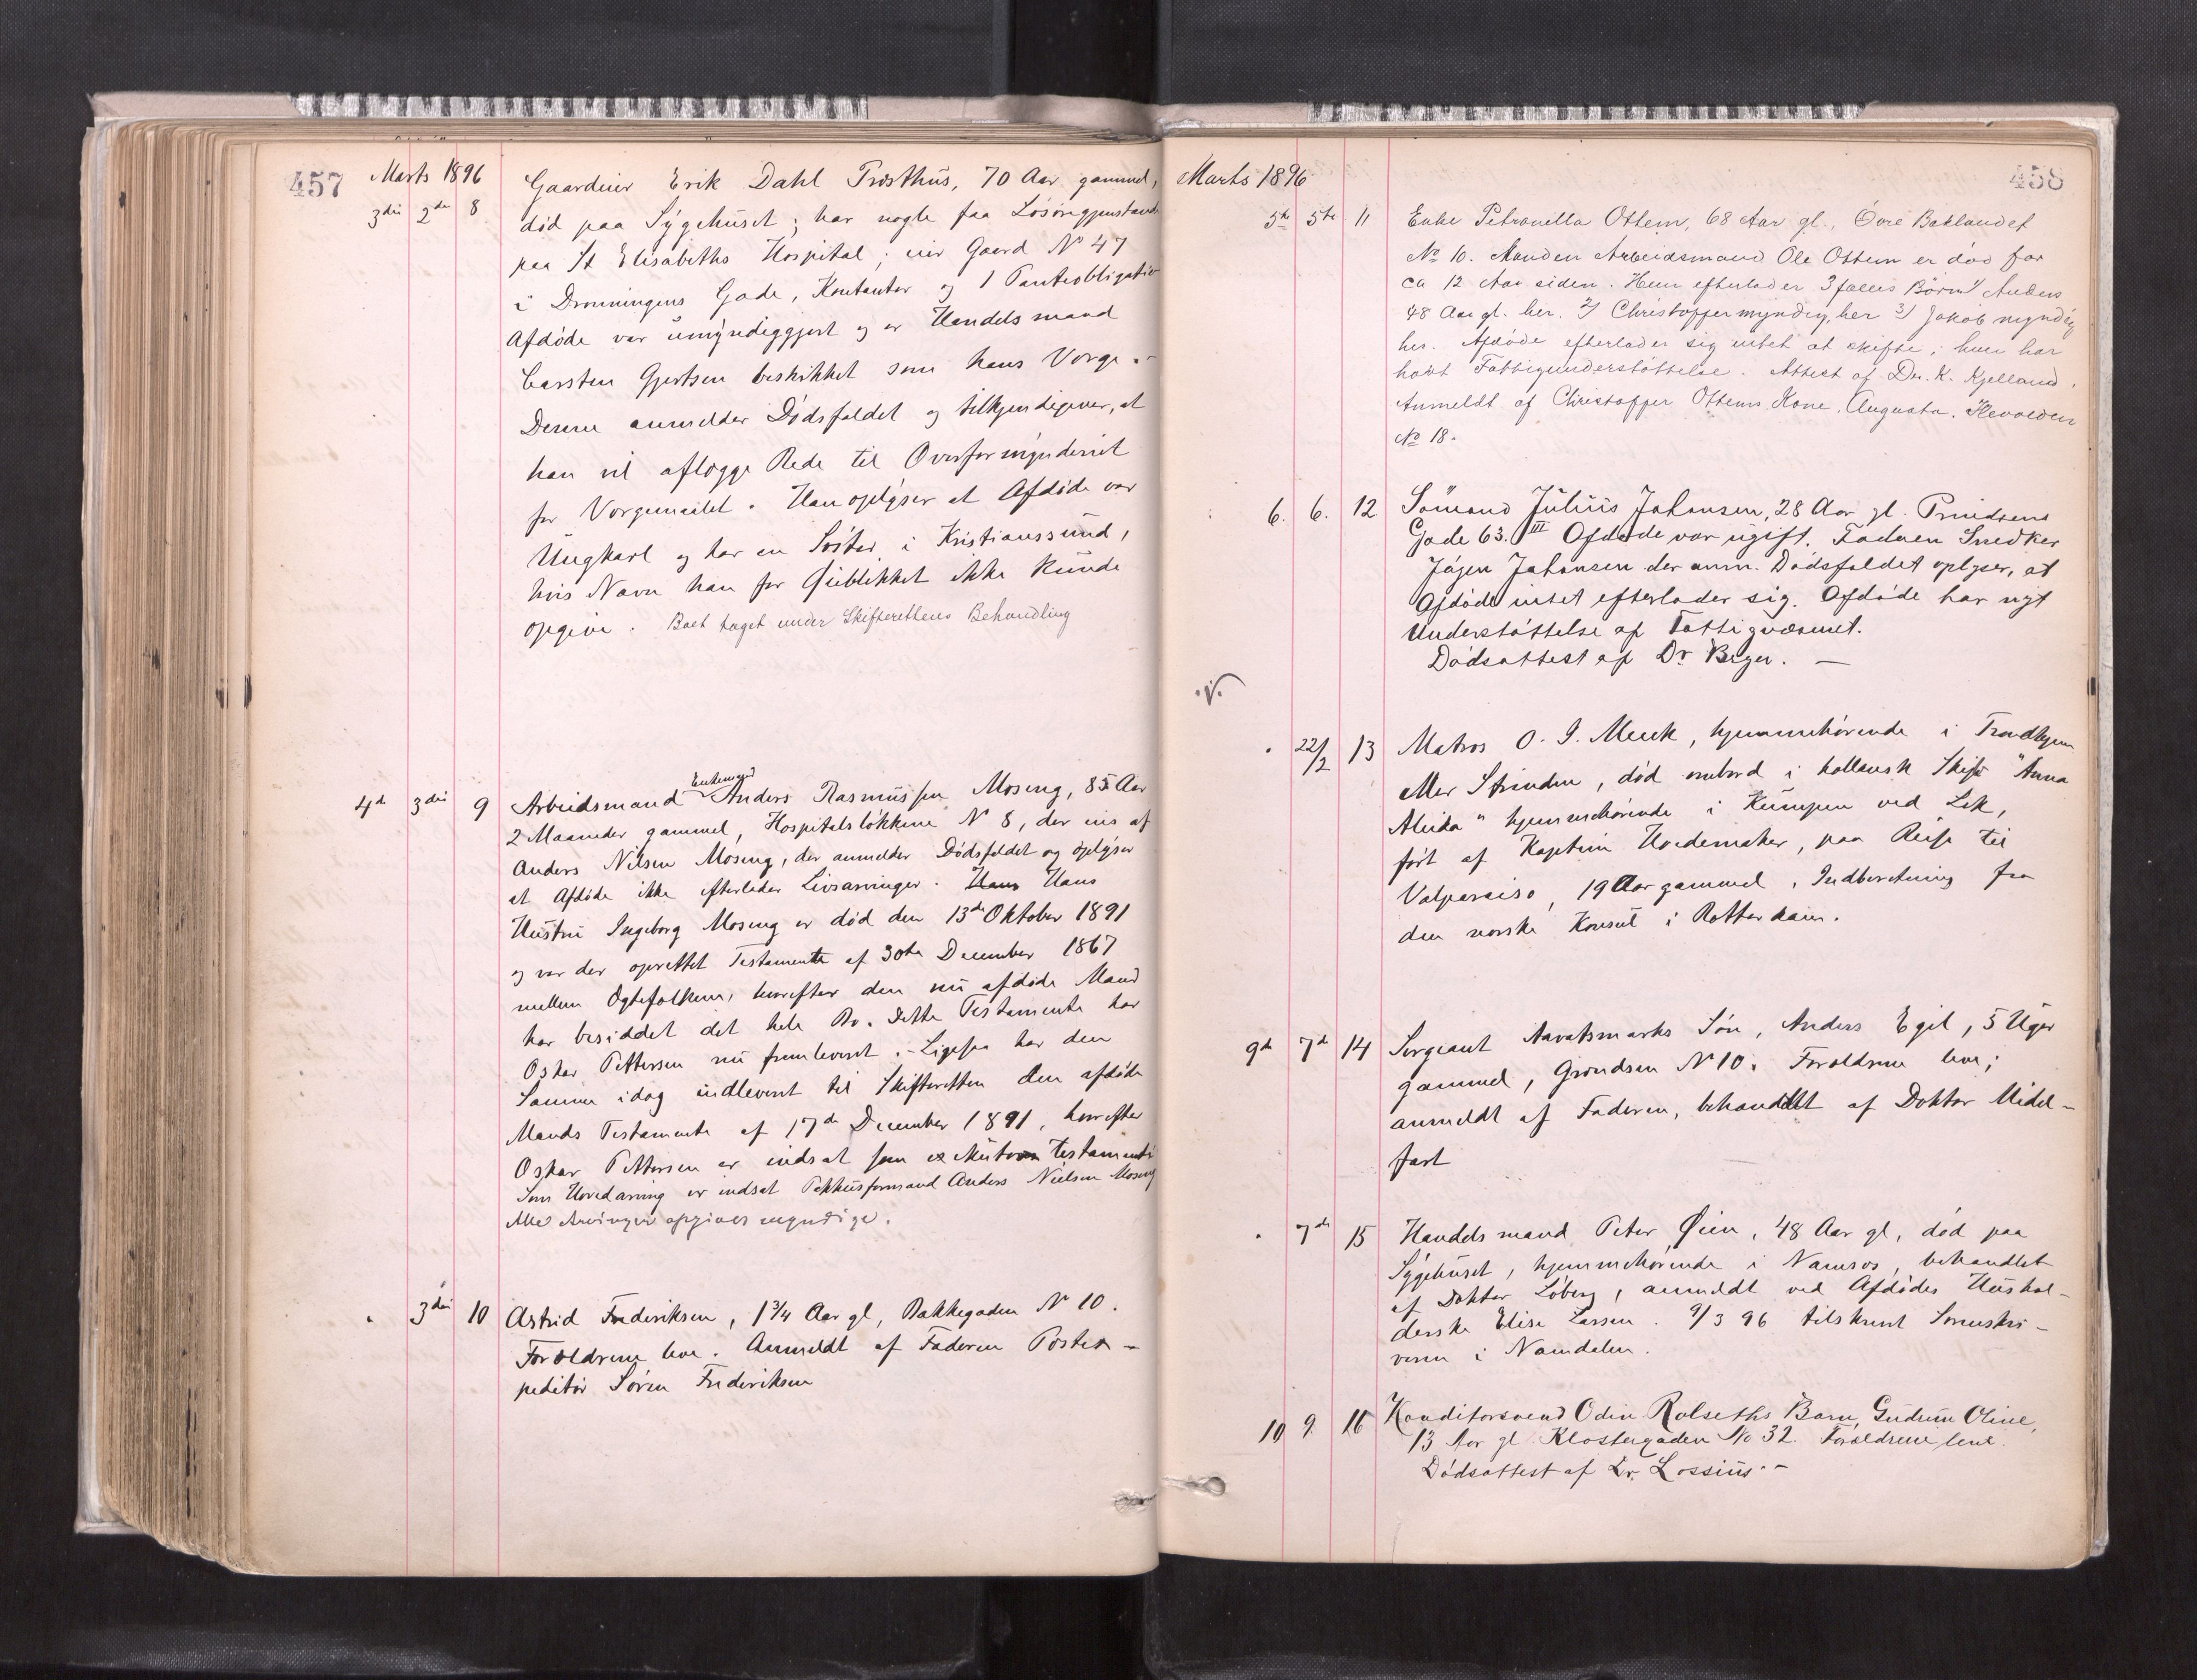 457
Marts 1896
3die 2den 8 Gaardeier Erik Dahl Trosthus, 70 Aar gammel,
død paa Sygehuset; har nogle faa Løsøregjenstande
paa St Elisabeths Hospital; eier Gaard No 47
i Dronningens Gade, Kontanter og 1 Panteobligation
Afdøde var umyndiggjort og er Handelsmand
Carsten Gjertsen beskikket som hans Værge.-
Denne anmelder Dødsfaldet og tilkjendegiver, at
han vil aflægge Rede til Overformynderiet
for Værgemaalet. Han oplyser at Afdøde var
Ungkarl og har en Søster i Kristianssund,
hvis Navn han for Øieblikket ikke kunde
opgive. Boet taget under Skifterettens Behandling
4de 3die 9 Arbeidsmand Enkemand Anders Rasmussen Moseng, 85 Aar
2 Maaneder gammel, Hospitalsløkkene N 8, der eies af
Anders Nilsen Moseng, der anmelder Dødsfaldet og oplyser
at Afdøde ikke efterlader Livsarvinger. Hans Hans
Hustru Ingeborg Moseng er død den 13de Oktober 1891
og var der oprettet Testamente af 30te December 1867
mellem Ægtefolkene, hvorefter den nu afdøde Mand
har besiddet det hele Bo. Dette Testamente har
Oskar Pettersen nu fremleveret. - Ligesaa har den
Samme idag indleveret til Skifteretten den afdøde
Mands Testamente af 17de December 1891, hvorefter
Oskar Pettersen er indsat som exekutor testamenti
Som Hovedarving er indsat Pakhusformand Anders Nielsen Moseng
Alle Arvinger opgives myndige.
" 3die 10 Astrid Frederiksen, 1 3/4 Aar gl, Bakkegaden N 10.
Forældrene leve. Anmeldt af Faderen Postex-
peditør Søren Frederiksen
Marts 1896
458
5te 5te 11 Enke Petronella Ottem, 68 Aar gl., Øvre Baklandet
No 10. Manden Arbeidsmand Ole Ottem er død for
ca 12 Aar siden. Hun efterlader 3 fælles Børn 1/ Anders
48 Aar gl. her. 2/ Christoffer myndig, her 3/ Jakob myndig
her. Afdøde efterlader sig intet at skifte; hun har
havt Fattigunderstøttelse. Attest af Dr. K. Kjelland.
Anmeldt af Christoffer Ottems Kone, Augusta.
No 18.
6. 6. 12 Sømand Julius Johansen, 28 Aar gl. Prindsens
Gade 63.III Afdøde var ugift. Faderen Snedker
Johansen der anm. Dødsfaldet oplyser, at
Afdøde intet efterlader sig. Afdøde har nyt
Understøttelse af Fattigvæsenet.
Dødsattest af Dr. . —
" 22/2 13 Matros O. I. Meek, hjemmehørende i Trondhjem
eller Strinden, død ombord i hollansk Skib "Anna
Aleida" hjemmehørende i ved Lek,
ført af Kaptein , paa Reise til
Valparaiso, 19 Aar gammel. Indberetning fra
den norske Konsul i Rotterdam.
9de 7de 14 Sergeant Aavatsmarks Søn, Anders Egil, 5 Uger
gammel, Grændsen N 10. Forældrene leve;
anmeldt af Faderen, behandlet af Doktor Midel-
fart
" 7de 15 Handelsmand Peter Øien, 48 Aar gl, død paa
Sygehuset, hjemmehørende i Namsos, behandlet
af Doktor Løberg, anmeldt ved Afdødes Hushol-
derske Elise Larsen. 9/3 96 tilskrevet Sorenskri-
veren i Namdalen.
10 9. 16 Konditorsvend Odin Rolseths Barn, Gudrun Oline,
13 Aar gl Klostergaden No 32. Forældrene leve.
Dødsattest af Dr. Lossius.-